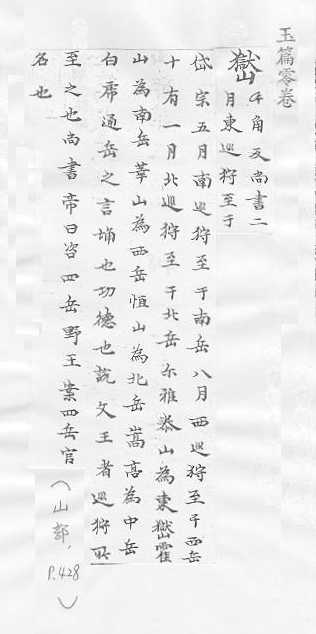 玉篇零卷
嶽 牛角反尚書二
月東巡狩至于
岱宗五月南巡狩至于南岳八月西巡狩至于西岳
十有一月北巡狩至于北岳尓雅泰山為東嶽霍
山為南岳華山為西岳恒山為北岳嵩高為中岳
白虎通岳之言埇也功德也說文王者巡狩所
至之也尚書帝曰咨四岳野王案四岳官
名也
(山部,
P.428)